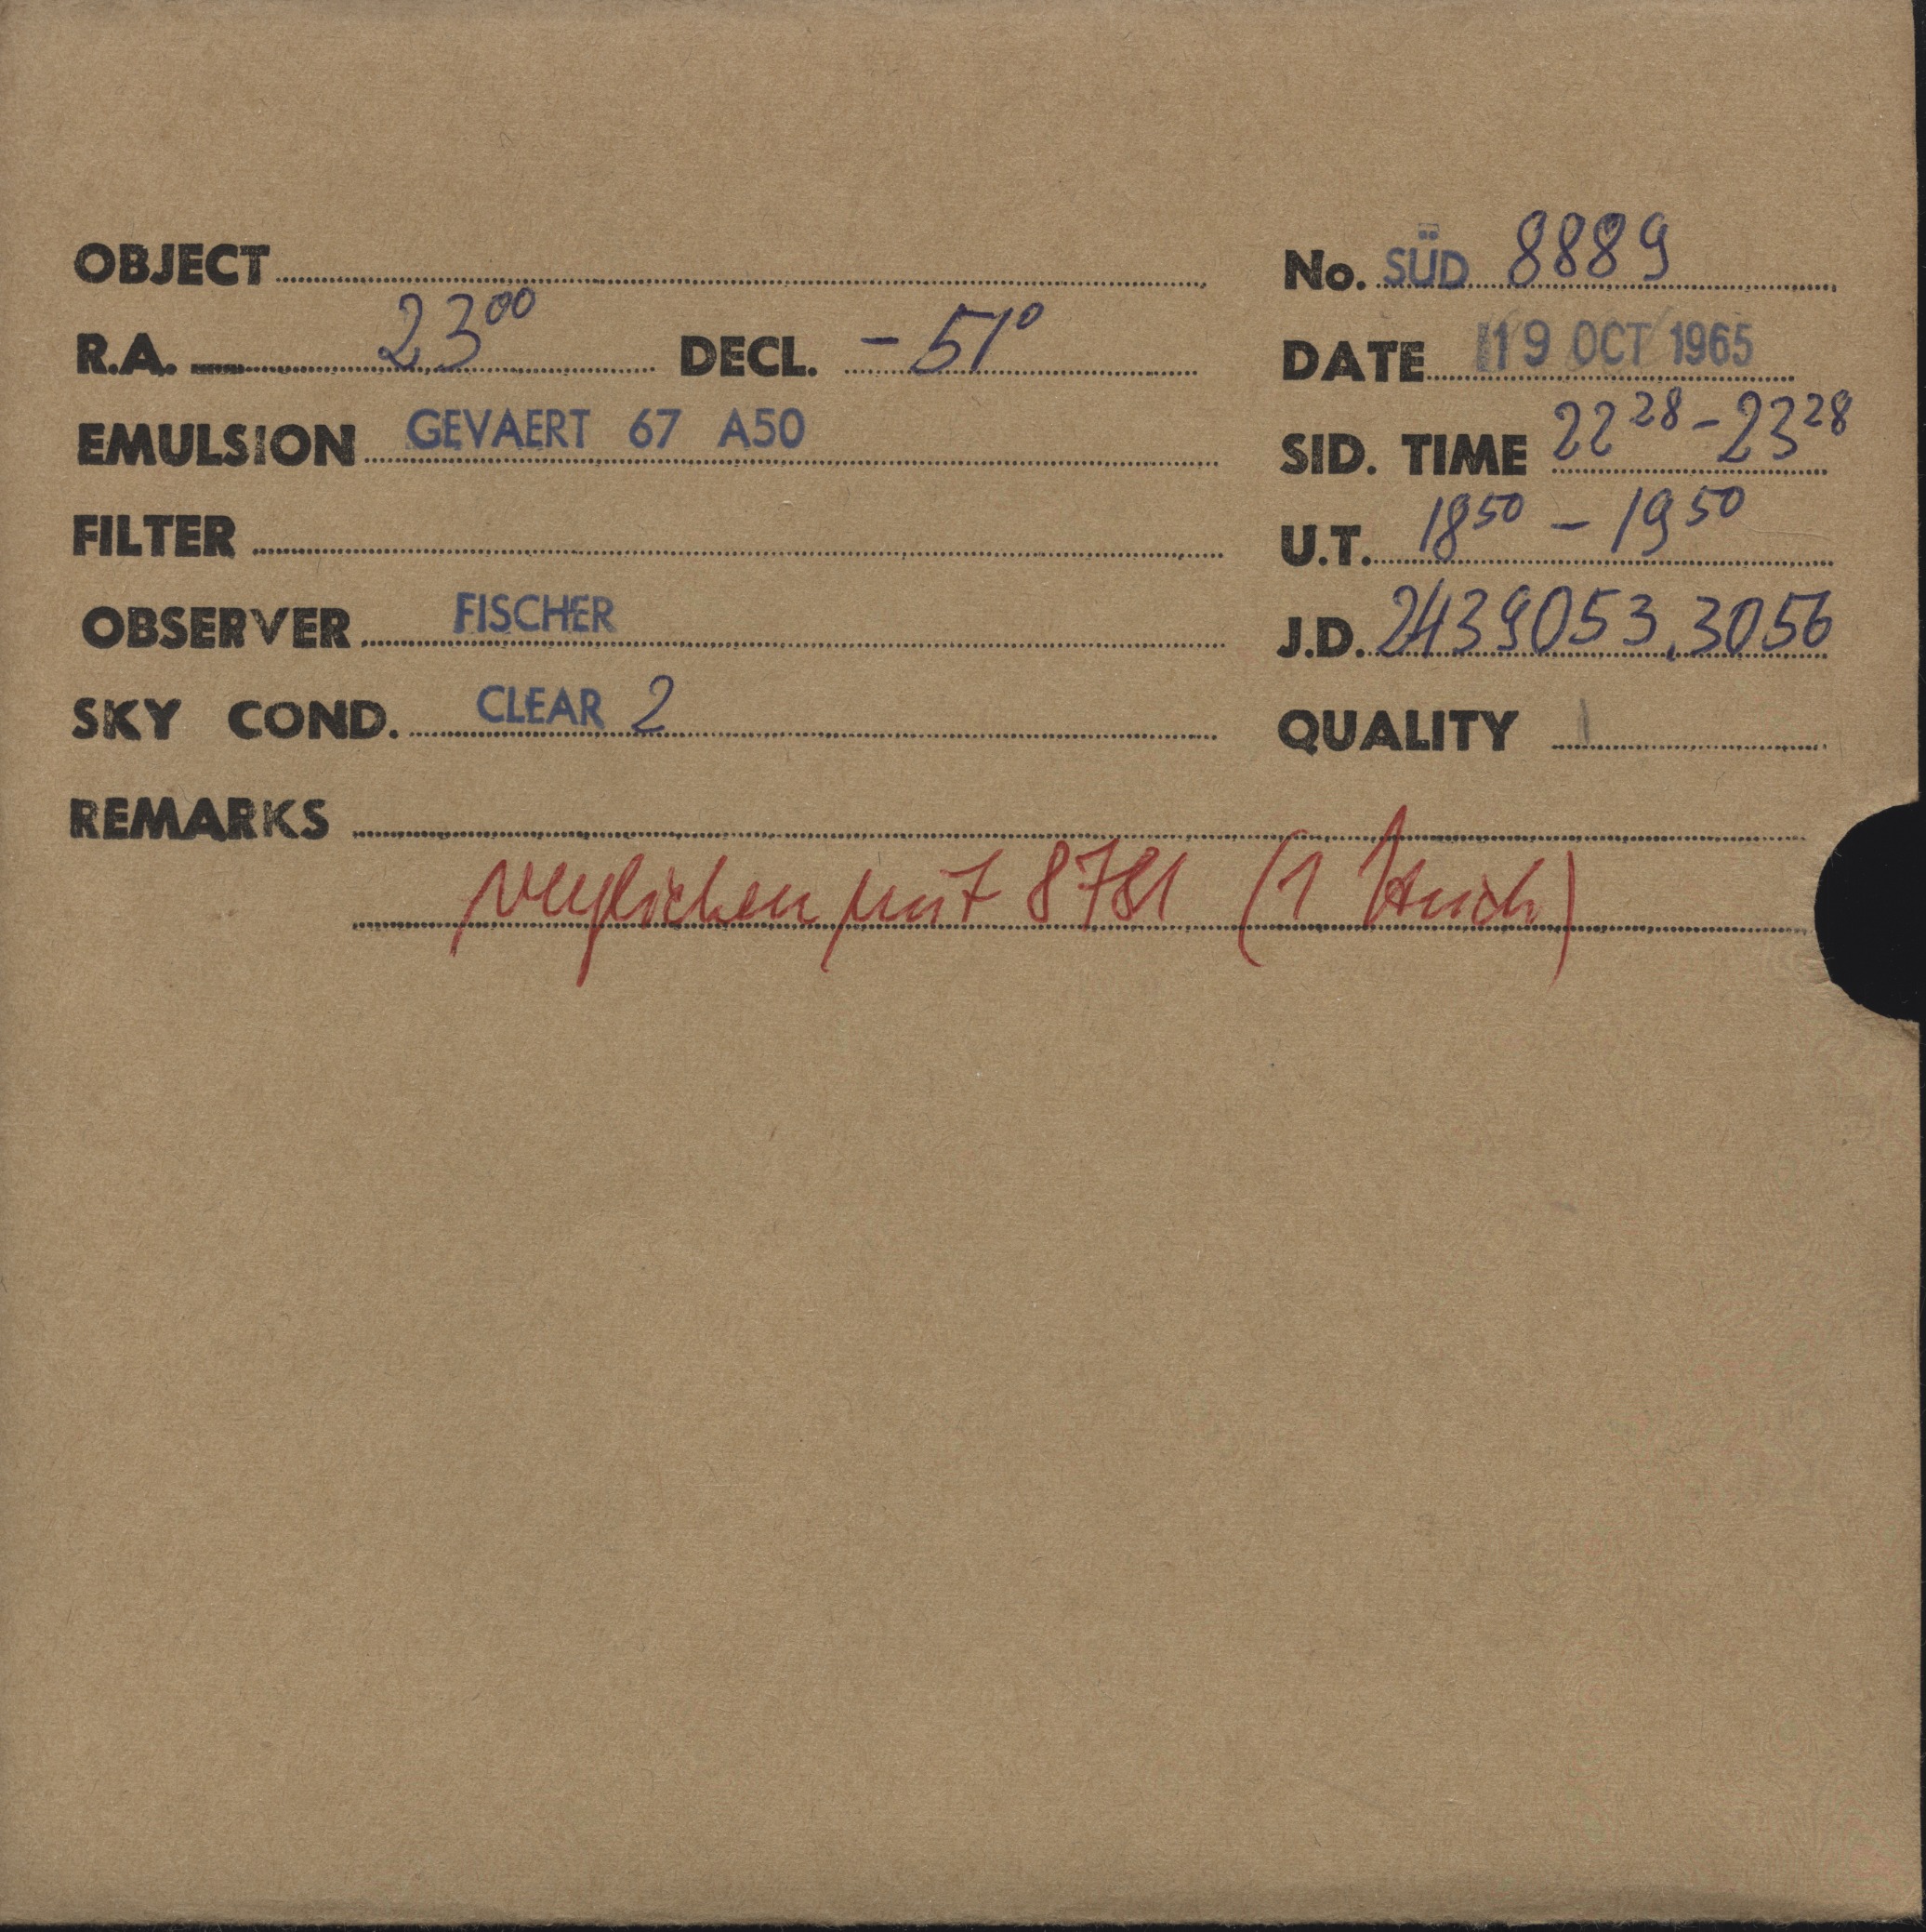 OBJECT
No. SÜD 8889
R.A. 23⁰⁰ DECL. -51°
DATE 19 OCT 1965
EMULSION GEVAERT 67 A50
SID. TIME 22²⁸-23²⁸
FILTER
U.T. 18⁵⁰ - 19⁵⁰
OBSERVER FISCHER
J.D. 2439053.3056
SKY COND. CLEAR 2
QUALITY 1
REMARKS
verglichen mit 8781 (1